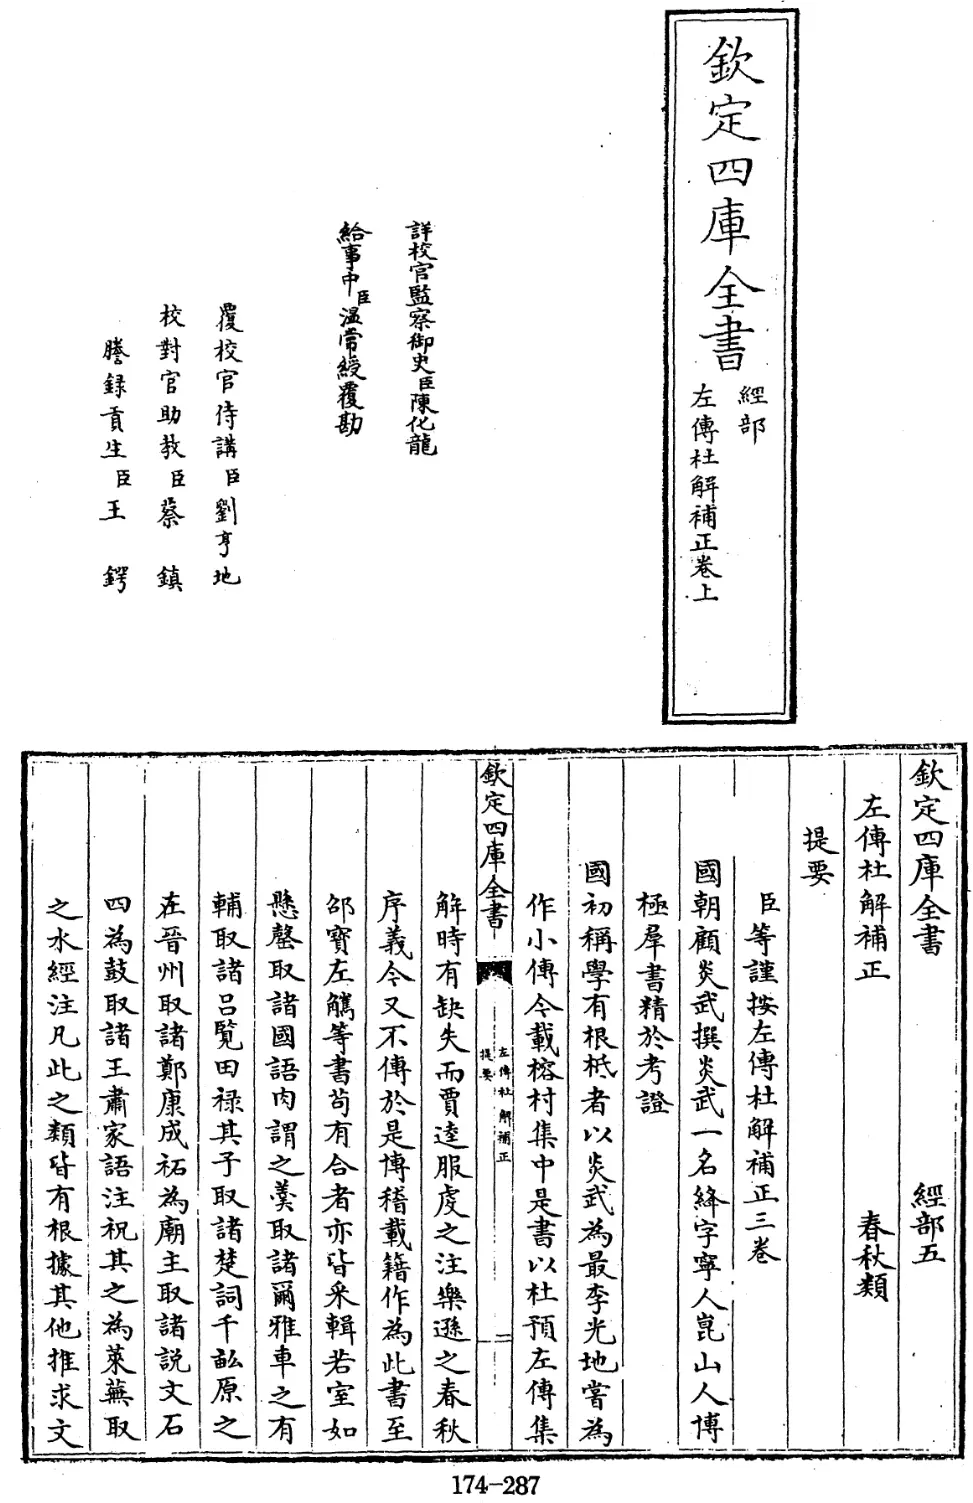 欽定四庫全書
經部
左傳杜解補正卷上
詳校官監察御史臣陳化龍
給事中臣溫常綬覆勘
覆校官侍講臣劉亨地
校對官助教臣蔡鎮
謄錄貢生臣王鍔
欽定四庫全書 經部五
左傳杜解補正 春秋類
提要
臣等謹按左傳杜解補正三卷
國朝顧炎武撰炎武一名絳字寧人崑山人博
極羣書精於考證
國初稱學有根柢者以炎武為最李光地嘗為
作小傳今載榕村集中是書以杜預左傳集
欽定四庫全書
左傳杜解補正
提要
二
解時有缺失而賈逵服虔之注樂遜之春秋
序義今又不傳於是博稽載籍作為此書至
邵寶左觿等書苟有合者亦皆采輯若室如
懸罄取諸國語肉謂之羹取諸爾雅車之有
輔取諸呂覽田祿其子取諸楚詞千畝原之
在晉州取諸鄭康成祏為廟主取諸說文石
四為鼓取諸王肅家語注祝其之為萊蕪取
之水經注凡此之類皆有根據其他推求文
174-287